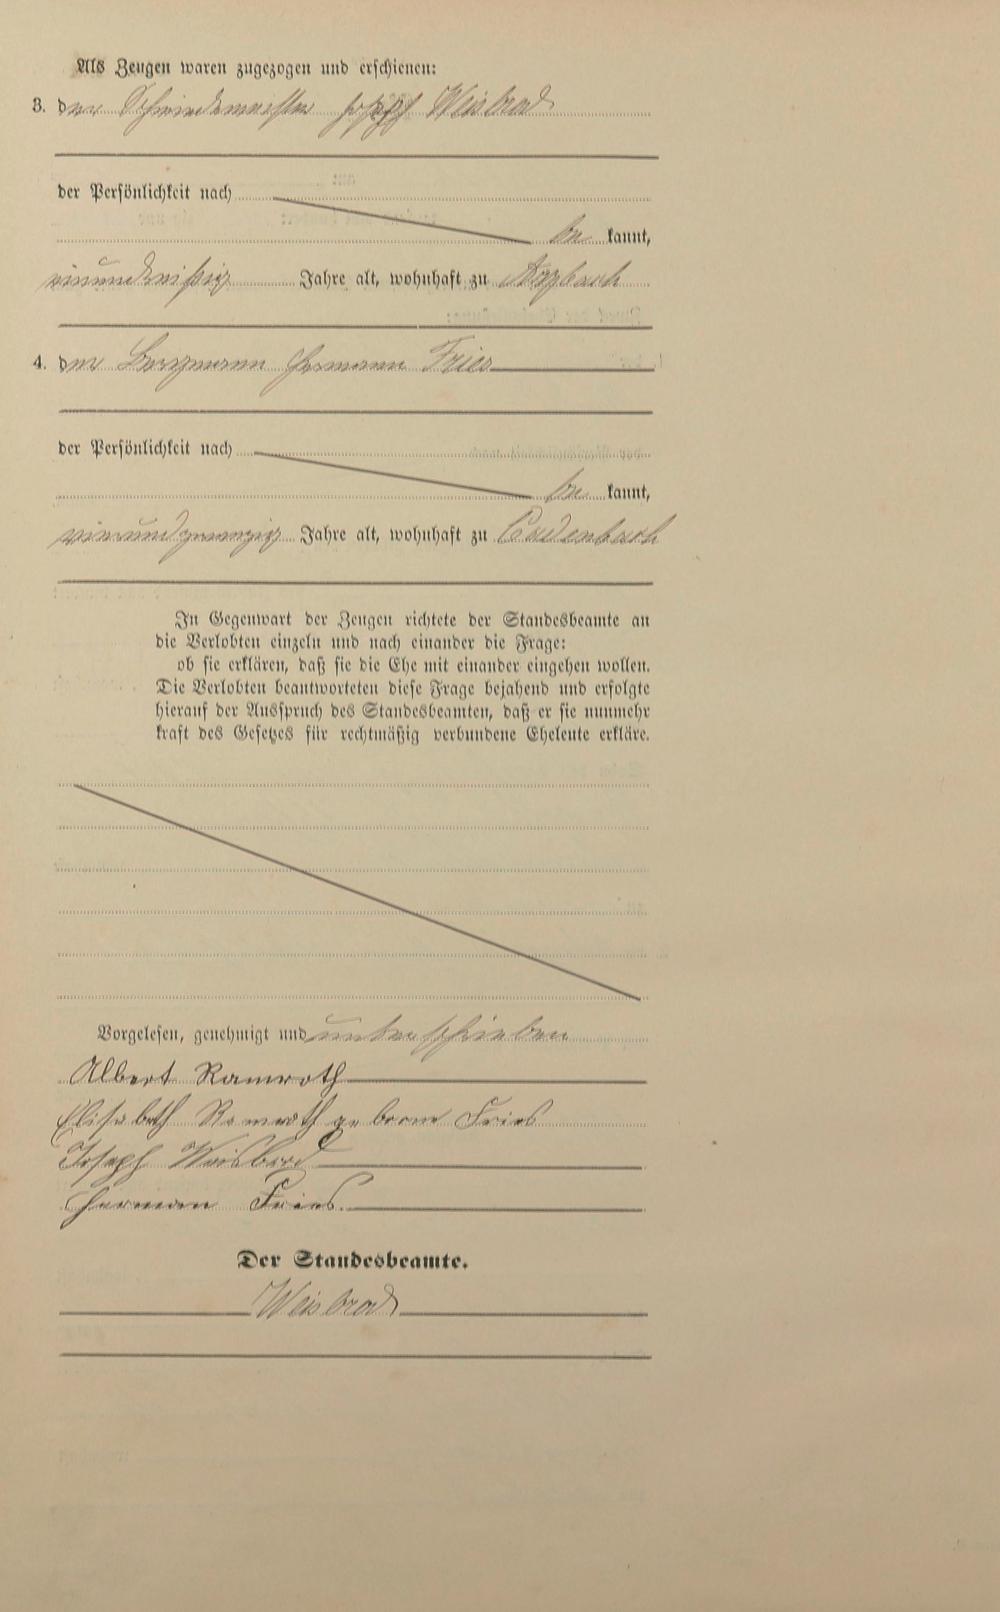 Als Zeugen waren zugezogen und erschienen:
3. der Schmiedemeister Joseph Weisbrod
der Persönlichkeit nach
be kannt,
einunddreißig Jahre alt, wohnhaft zu Arzbach
4. der Bergmann Hermann Fries
der Persönlichkeit nach
be kannt,
vierundzwanzig Jahre alt, wohnhaft zu Cadenbach
In Gegenwart der Zeugen richtete der Standesbeamte an
die Verlobten einzeln und nach einander die Frage:
ob sie erklären, daß sie die Ehe mit einander eingehen wollen.
Die Verlobten beantworteten diese Frage bejahend und erfolgte
hierauf der Ausspruch des Standesbeamten, daß er sie nunmehr
kraft des Gesetzes für rechtmäßig verbundene Eheleute erkläre.
Vorgelesen, genehmigt und unterschrieben
Albert Ramroth
Elisabeth Ramroth geborne Fries
Joseph Weisbrod
Herman Fries.
Der Standesbeamte.
Weisbrod